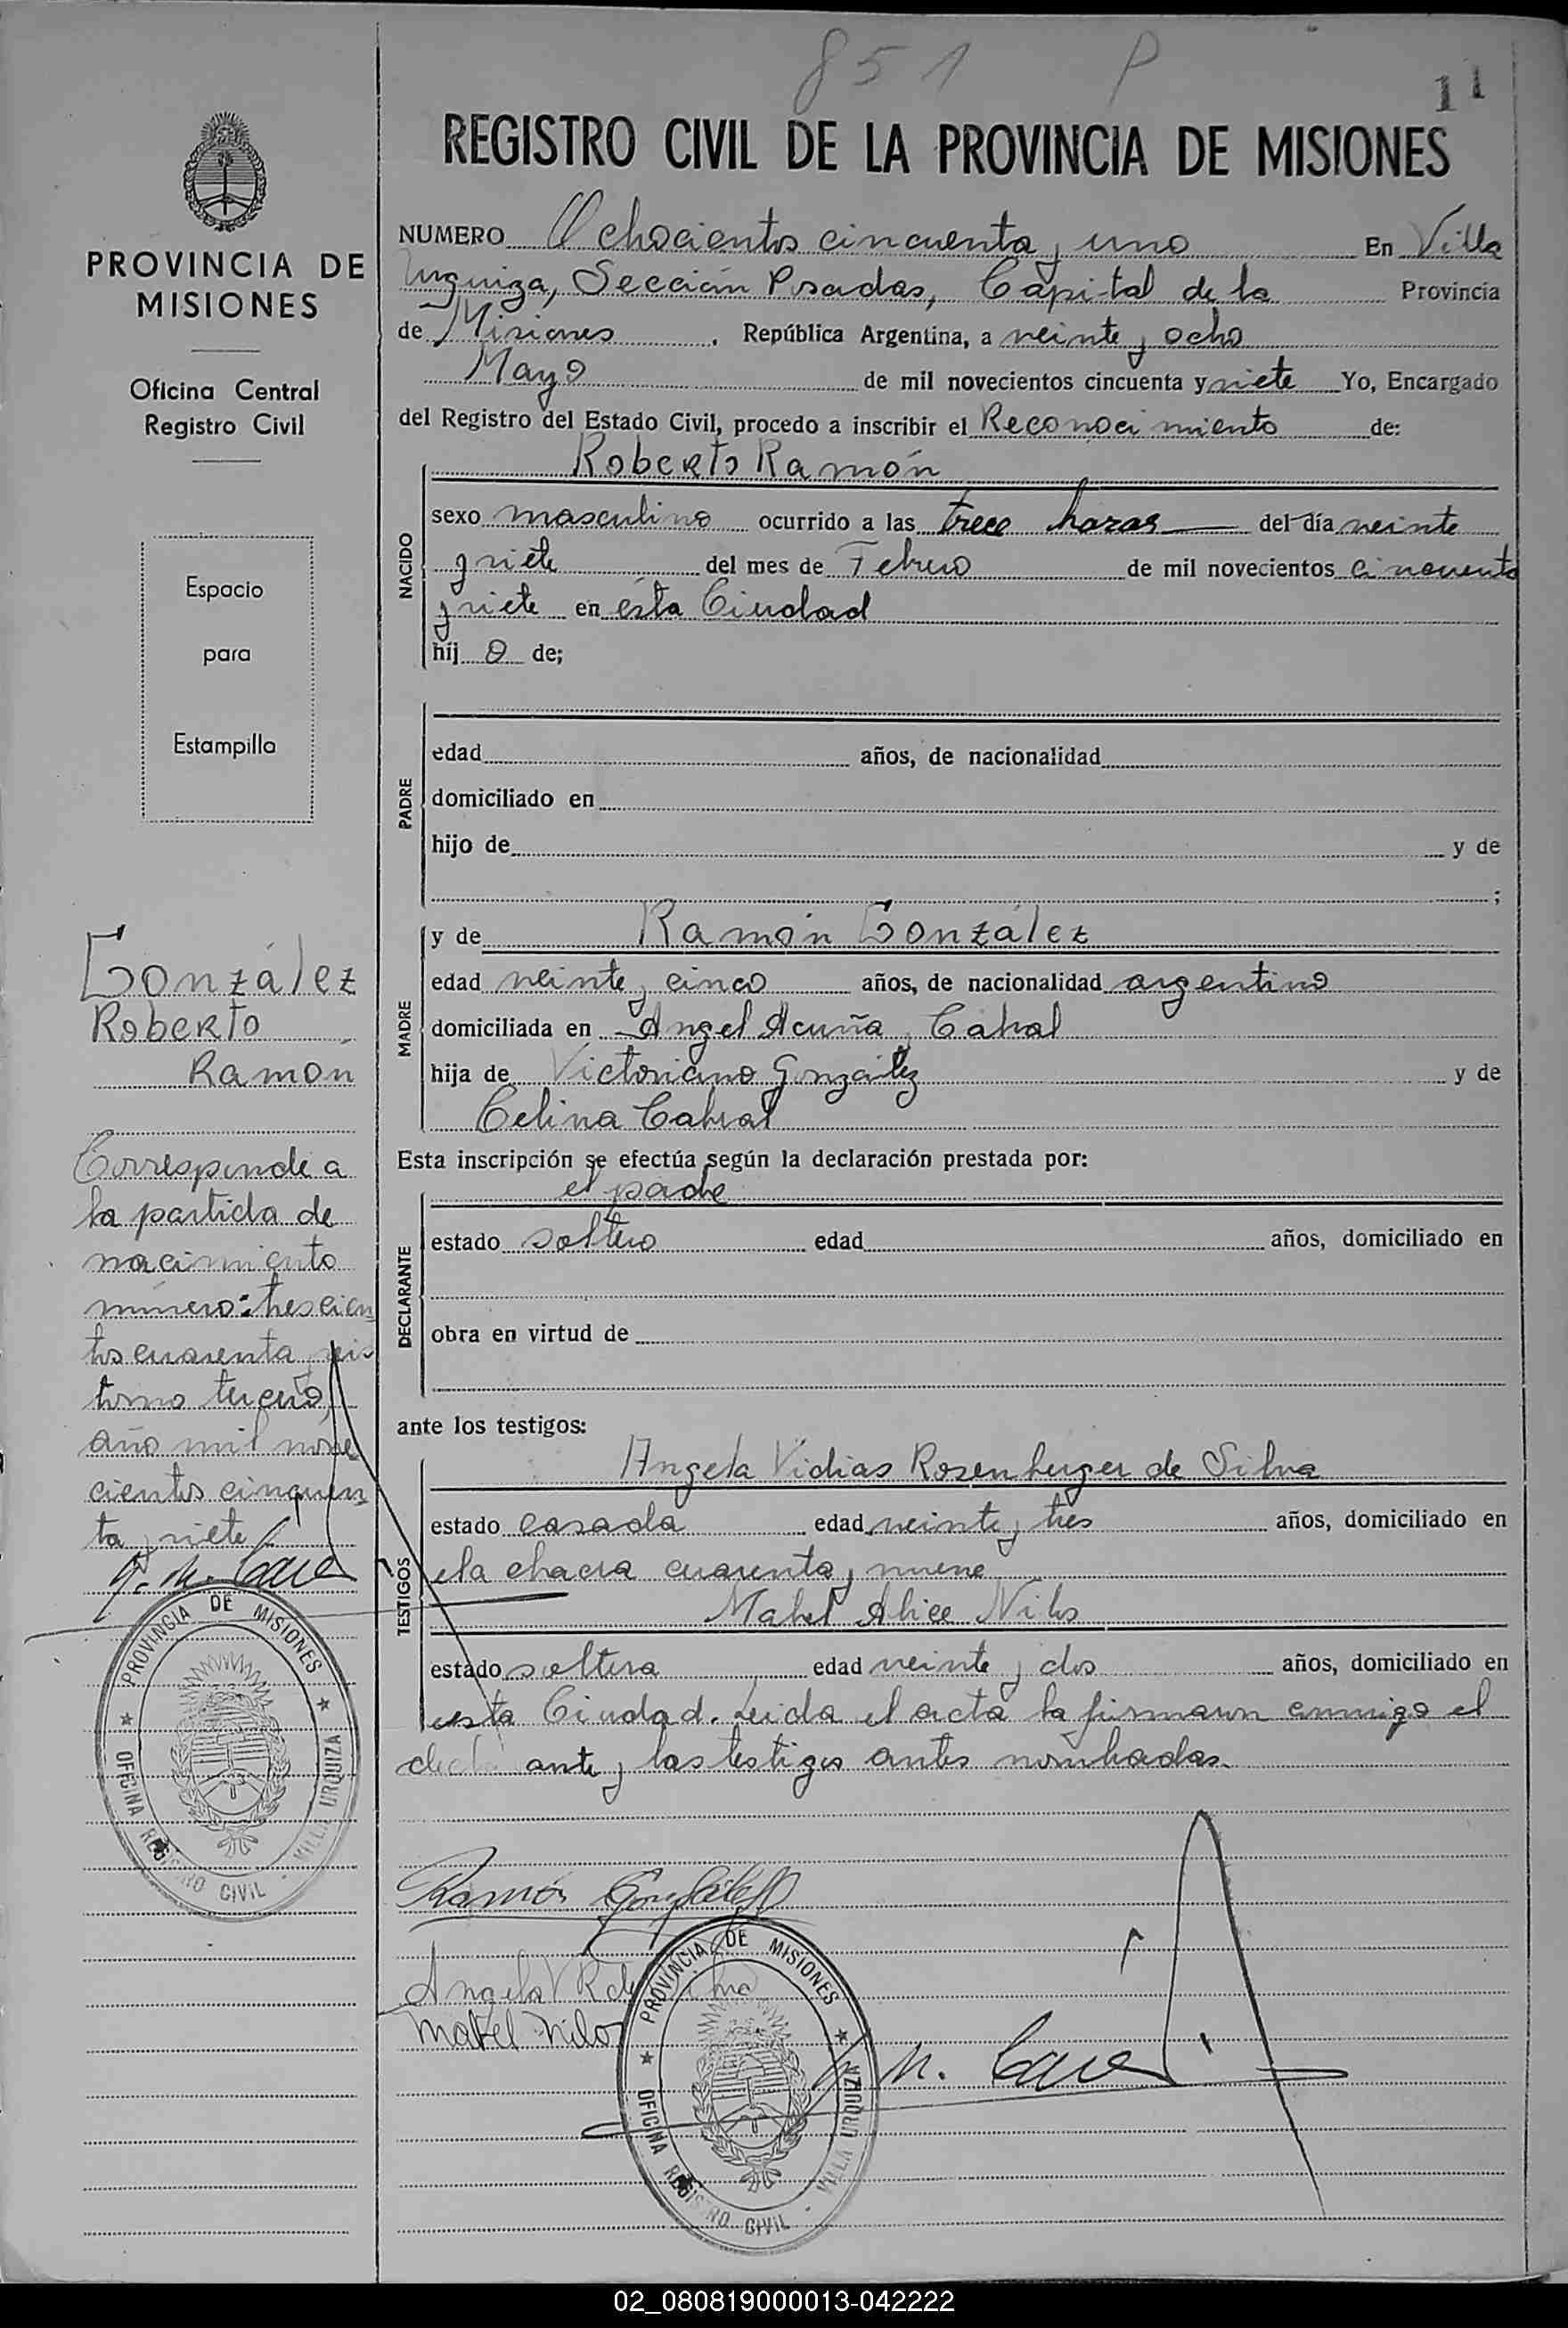 851 P
11
REGISTRO CIVIL DE LA PROVINCIA DE MISIONES
NUMERO Ochocientos cincuenta y uno En Villa
Urquiza, Sección Posadas, Capital de la Provincia
de Misiones, República Argentina, a veinte y ocho
Mayo de mil novecientos cincuenta y siete Yo, Encargado
del Registro del Estado Civil, procedo a inscribir el Reconocimiento de:
NACIDO
Roberto Ramón
sexo masculino ocurrido a las trece horas del día veinte
y siete del mes de Febrero de mil novecientos cincuenta
y siete en ésta Ciudad
hij o de;
PADRE
edad años, de nacionalidad
domiciliado en
hijo de y de
;
MADRE
y de Ramón González
edad veinte y cinco años, de nacionalidad argentino
domiciliada en Angel Acuña y Cabral
hija de Victoriano González y de
Celina Cabral
Esta inscripción se efectúa según la declaración prestada por:
DECLARANTE
el padre
estado soltero edad años, domiciliado en
obra en virtud de
ante los testigos:
TESTIGOS
Angela Vidias Rosenberger de Silva
estado casada edad veinte y tres años, domiciliado en
la chacra cuarenta y nueve
Mabel Alice Nilos
estado soltera edad veinte y dos años, domiciliado en
esta Ciudad. Leida el acta la firmaron conmigo el
ante y las testigos antes nombradas.
Ramón González
Angela V R de Silva
Mabel Nilos
PROVINCIA DE MISIONES
OFICINA REGISTRO CIVIL - VILLA URQUIZA
PROVINCIA DE
MISIONES
Oficina Central
Registro Civil
Espacio
para
Estampilla
González
Roberto
Ramón
Corresponde a
la partida de
nacimiento
número: trescien
tos cuarenta y seis
tomo tercero,
año mil nove
cientos cinquen
ta y siete
PROVINCIA DE MISIONES
OFICINA REGISTRO CIVIL - VILLA URQUIZA
02_080819000013-042222